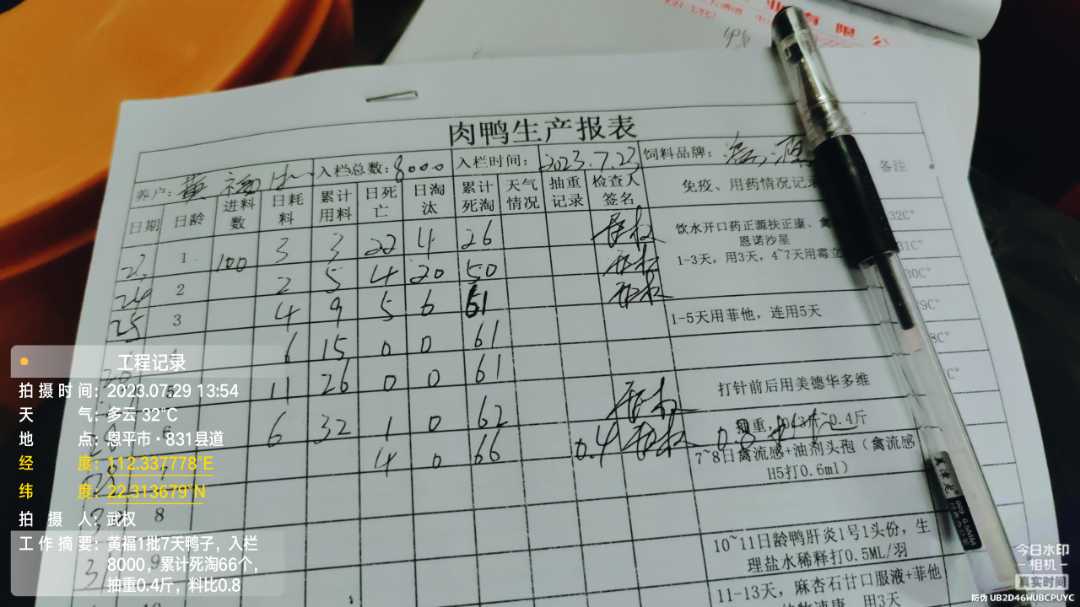 有限公
肉鸭生产报表
养户：黄福 入栏总数：8000 入栏时间：2023.7.23 饲料品牌： 备注
日期 日龄 进料数 日耗料 累计用料 日死亡 日淘汰 累计死淘 天气情况 抽重记录 检查人签名 免疫、用药情况记录
23 1 100 3 3 22 4 26 饮水开口药正源扶正康、禽 32C°
恩诺沙星
24 2 2 5 4 20 50 1-3天，用3天，4~7天用霉立 31C°
25 3 4 9 5 6 61 30C°
6 15 0 0 61 1-5天用菲他，连用5天
11 26 0 0 61
6 32 1 0 62 打针前后用美德华多维
4 0 66 0.4 0.8
0.4斤
7~8日禽流感+油剂头孢（禽流感
H5打0.6ml）
8
9 10~11日龄鸭肝炎1号1头份，生
理盐水稀释打0.5ML/羽
11-13天，麻杏石甘口服液+菲他
用3天
工程记录
拍摄时间：2023.07.29 13:54
天气：多云 32°C
地点：恩平市·831县道
经度：112.337778°E
纬度：22.313679°N
拍摄人：武权
工作摘要：黄福1批7天鸭子，入栏
8000，累计死淘66个，
抽重0.4斤，料比0.8
今日水印
相机
真实时间
防伪 UB2D46WUBCPUYC